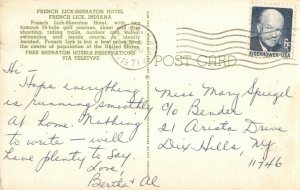 FRENCH LICK-SHERATON HOTEL
FRENCH LICK, INDIANA
French Lick-Sheraton Hotel, with two
famous 18-hole golf courses, skeet and trap
shooting, riding trails, outdoor and indoor
swimming and tennis courts, is ideally
located. French Lick is but a few miles from the
center of population of the United States.
FREE SHERATON HOTELS RESERVATIONS
VIA TELETYPE
1971
6c
EISENHOWER·USA
POST CARD
Hi -
Hope everything
is running smoothly
at home. Nothing
to write - will
have plenty to say.
Love,
Bertha + Al
Miss Mary Spiegel
c/o Bender
21 Arista Drive
Dix Hills NY
11746